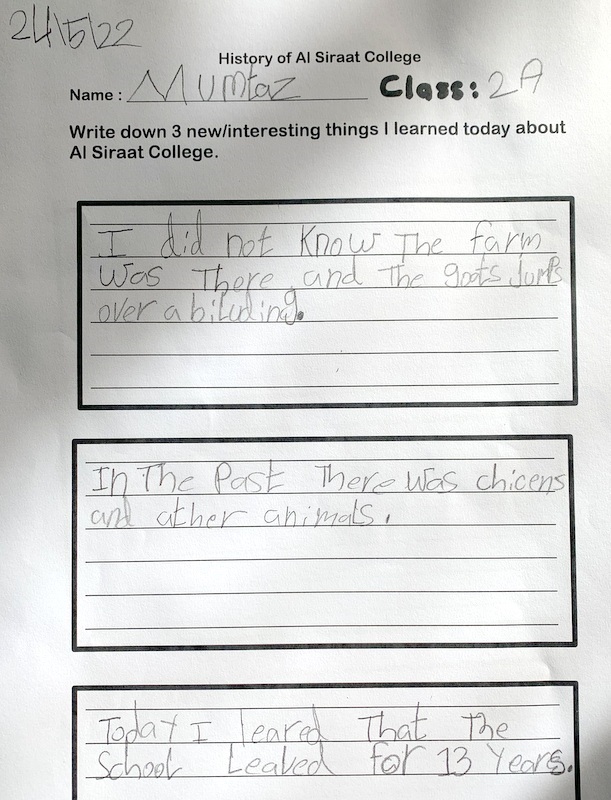 24\5\22
History of Al Siraat College
Name : Mumtaz Class: 2A
Write down 3 new/interesting things I learned today about
Al Siraat College.
I did not know The farm
was There and The gots Jumps
over a biluding.
In The Past There was chicens
and ather animals.
Today I leared That The
School Leabed for 13 Years.